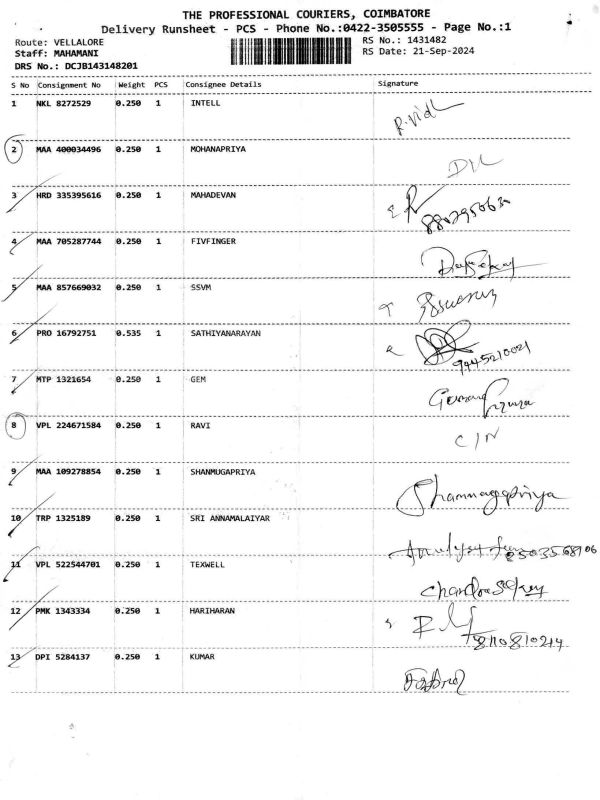 THE PROFESSIONAL COURIERS, COIMBATORE
Delivery Runsheet - PCS - Phone No.:0422-3505555 - Page No.:1
Route: VELLALORE
Staff: MAHAMANI
DRS No.: DCJB143148201
RS No.: 1431482
RS Date: 21-Sep-2024
S No Consignment No Weight PCS Consignee Details Signature
1 NKL 8272529 0.250 1 INTELL R.vidL
2 MAA 400034496 0.250 1 MOHANAPRIYA D/L
3 HRD 335395616 0.250 1 MAHADEVAN
4 MAA 705287744 0.250 1 FIVFINGER
5 MAA 857669032 0.250 1 SSVM
6 PRO 16792751 0.535 1 SATHIYANARAYAN 9445210021
7 MTP 1321654 0.250 1 GEM
8 VPL 224671584 0.250 1 RAVI C/N
9 MAA 109278854 0.250 1 SHANMUGAPRIYA Shanmugapriya
10 TRP 1325189 0.250 1 SRI ANNAMALAIYAR
11 VPL 522544701 0.250 1 TEXWELL
12 PMK 1343334 0.250 1 HARIHARAN 8110810214
13 DPI 5284137 0.250 1 KUMAR